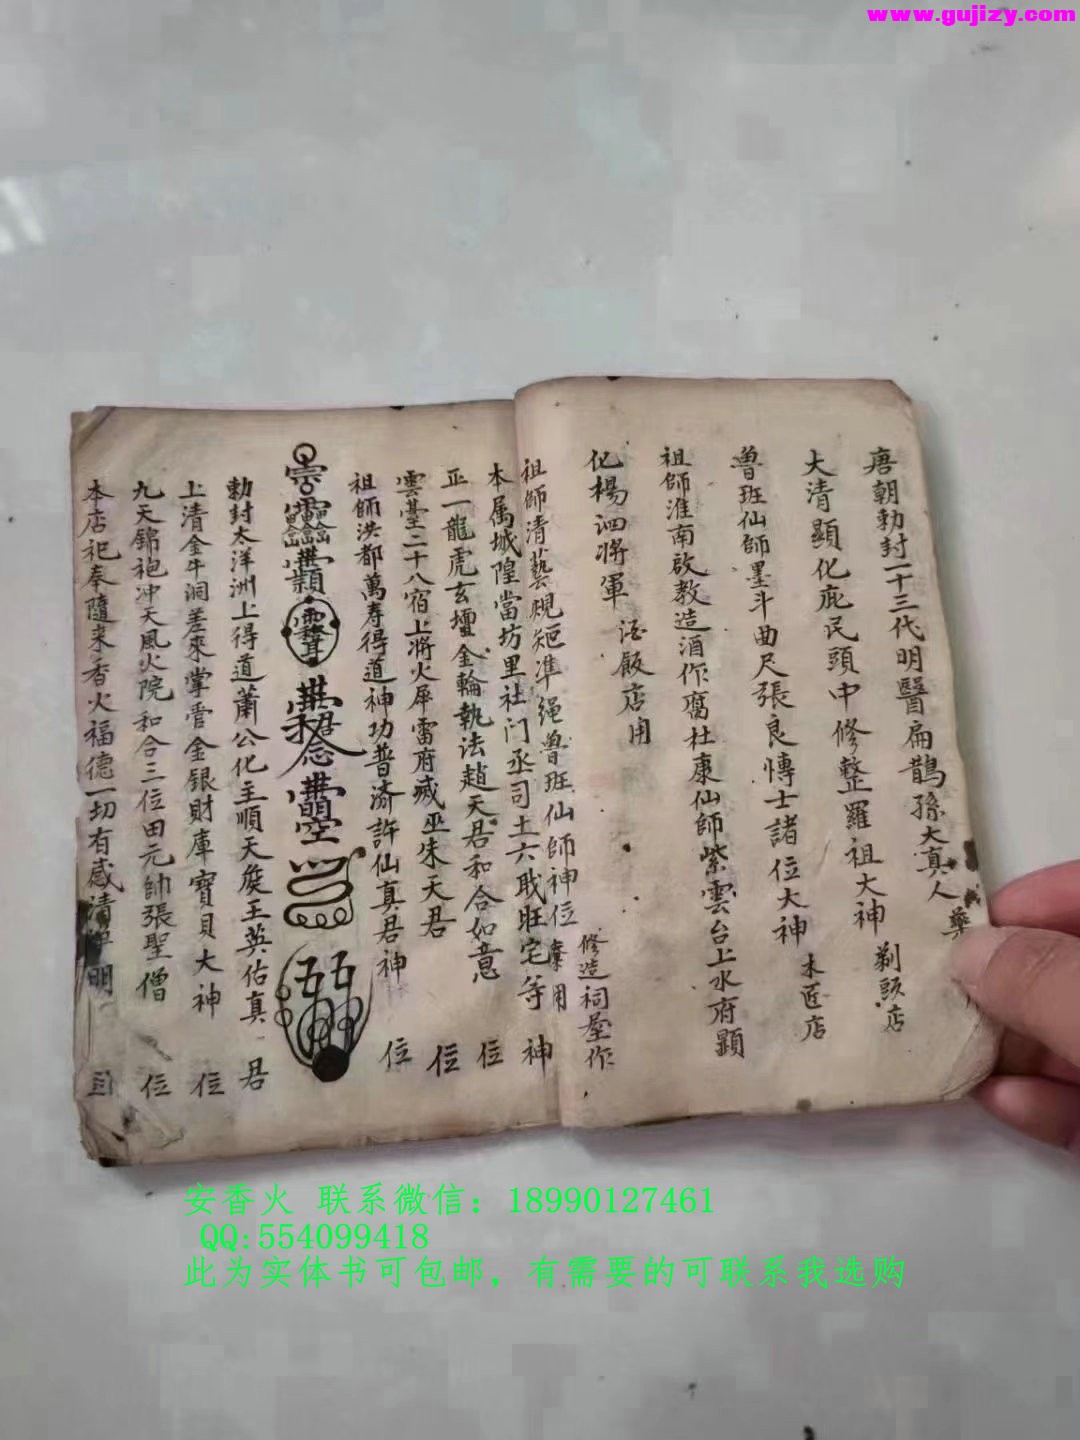 www.gujizy.com
唐朝勅封一十三代明醫扁鵲孫大真人 藥
大清顯化庇民頭中修整羅祖大神 剃頭店
魯班仙師墨斗曲尺張良愽士諸位大神 木匠店
祖师淮南啟教造酒作腐杜康仙師紫雲台上水府顯
化楊泗将軍 酒飯店用
修造祠屋作
祖師清藝規矩準绳魯班仙师神位 用
本属城隍當坊里社门丞司土六戝旺宅等 神
正一龍虎玄壇金輪執法趙天君和合如意 位
雲臺二十八宿上將火犀雷府 巫朱天君 位
祖师洪都萬寿得道神功普濟許仙真君神 位
勅封太洋洲上得道蕭公化主順天 王英佑真 君
上清金牛洞差來掌管金銀財庫寶貝大神 位
九天錦袍冲天風火院和合三位田元帥張聖僧 位
本店祀奉隨来香火福德一切有感 明
安香火 联系微信：18990127461
QQ:554099418
此为实体书可包邮，有需要的可联系我选购